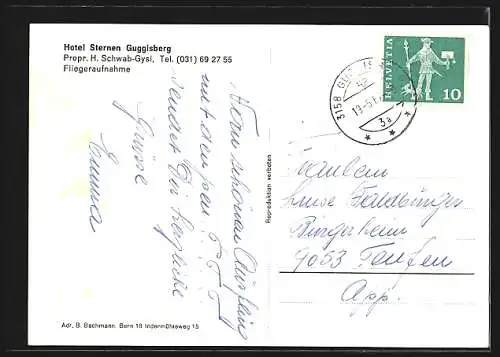 Hotel Sternen Guggisberg
Propr. H. Schwab-Gysi, Tel. (031) 69 27 55
Fliegeraufnahme
Vom schönen Ausflug
mit dem
sendet Dir herzliche
Grüsse
Emma
Adr. B. Bachmann, Bern 18 Indermühleweg 15
Reproduktion verboten
3158 GU
3a
HELVETIA
10
Fräulein
Luise
Bürgerheim
9053 Teufen
App.